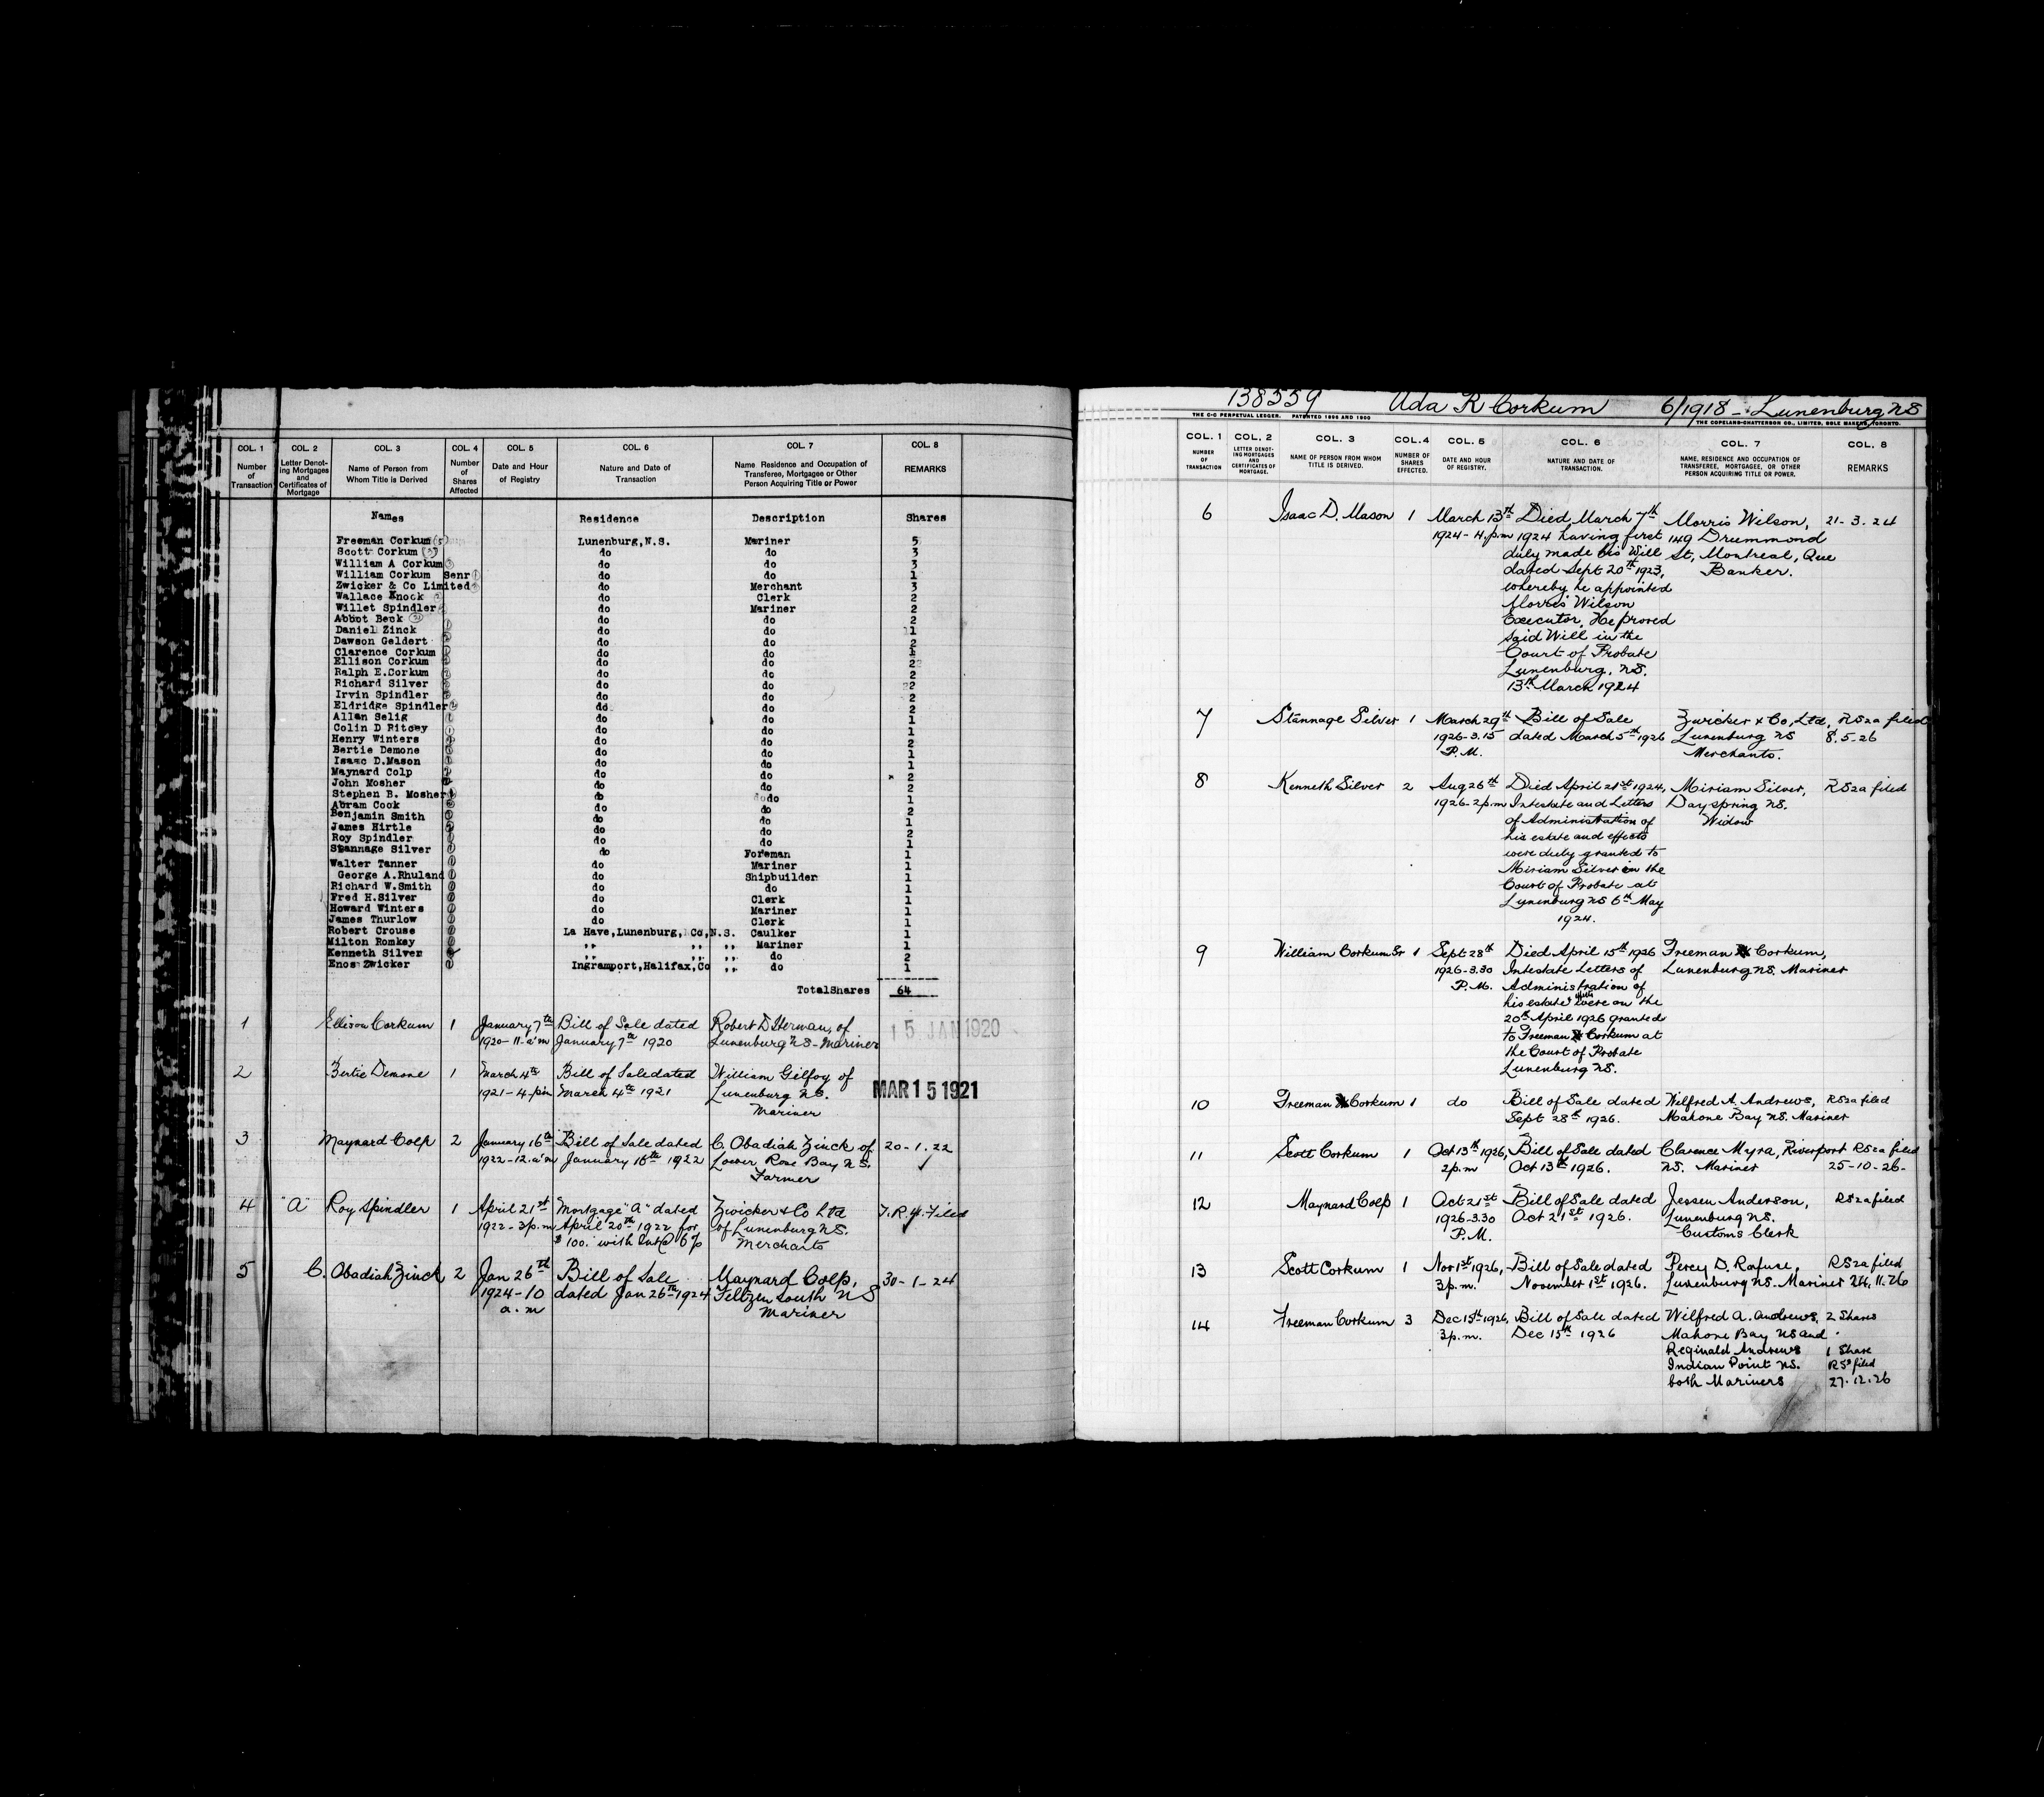 COL. 1 COL. 2 COL. 3 COL. 4 COL. 5 COL. 6 COL. 7 COL. 8
Number of Transaction
Letter Denoting Mortgages and Certificates of Mortgage
Name of Person from Whom Title is Derived
Number of Shares Affected
Date and Hour of Registry
Nature and Date of Transaction
Name Residence and Occupation of Transferee, Mortgagee or Other Person Acquiring Title or Power
REMARKS
Names Residence Description Shares
Freeman Corkum (5) Lunenburg,N.S. Mariner 5
Scott Corkum (3) do do 3
William A Corkum do do 3
William Corkum Senr do do 1
Zwicker & Co Limited do Merchant 3
Wallace Knock do Clerk 2
Willet Spindler do Mariner 2
Abbot Beck do do 2
Daniel Zinck do do 1
Dawson Geldert do do 2
Clarence Corkum do do 1
Ellison Corkum do do 2
Ralph E.Corkum do do 2
Richard Silver do do 2
Irvin Spindler do do 2
Eldridge Spindler do do 2
Allan Selig do do 1
Colin D Ritcey do do 1
Henry Winters do do 2
Bertie Demone do do 1
Isaac D.Mason do do 1
Maynard Colp do do 2
John Mosher do do 2
Stephen B. Mosher do do 1
Abram Cook do do 2
Benjamin Smith do do 1
James Hirtle do do 2
Roy Spindler do do 1
Stannage Silver do Foreman 1
Walter Tanner do Mariner 1
George A.Rhuland do Shipbuilder 1
Richard W.Smith do do 1
Fred H.Silver do Clerk 1
Howard Winters do Mariner 1
James Thurlow do Clerk 1
Robert Crouse La Have,Lunenburg, Co,N.S. Caulker 1
Milton Romkey ,, ,, ,, Mariner 1
Kenneth Silver ,, ,, ,, do 2
Enos Zwicker Ingramport,Halifax,Co ,, do 1
TotalShares 64
1 Ellison Corkum 1 January 7th Bill of Sale dated Robert D Herman, of 15 JAN 1920
1920-11-a.m January 7th 1920 Lunenburg NS-Mariner
2 Bertie Demone 1 March 4th Bill of Sale dated William Gilfoy of MAR 15 1921
1921-4.pm March 4th 1921 Lunenburg NS.
Mariner
3 Maynard Colp 2 January 16th Bill of Sale dated C. Obadiah Zinck of 20-1.22
1922-12.a.m January 16th 1922 Lower Rose Bay N S.
Farmer
4 "A" Roy Spindler 1 April 21st Mortgage "A" dated Zwicker & Co Ltd Filed
1922-3p.m April 20th 1922 for of Lunenburg NS.
$100. with Int @ 6% Merchants
5 C. Obadiah Zinck 2 Jan 26th Bill of Sale Maynard Colp, 30-1-24
1924-10 dated Jan 26th 1924 Feltzen South N S
a.m Mariner
138559 Ada R Corkum 6/1918 - Lunenburg NS
THE C-C PERPETUAL LEDGER. PATENTED 1896 AND 1900 THE COPELAND-CHATTERSON CO., LIMITED, SOLE MAKERS, TORONTO.
COL. 1 COL. 2 COL. 3 COL.4 COL. 5 COL. 6 COL. 7 COL. 8
NUMBER OF TRANSACTION
LETTER DENOTING MORTGAGES AND CERTIFICATES OF MORTGAGE.
NAME OF PERSON FROM WHOM TITLE IS DERIVED.
NUMBER OF SHARES EFFECTED.
DATE AND HOUR OF REGISTRY.
NATURE AND DATE OF TRANSACTION.
NAME, RESIDENCE AND OCCUPATION OF TRANSFEREE, MORTGAGEE, OR OTHER PERSON ACQUIRING TITLE OR POWER.
REMARKS
6 Isaac D. Mason 1 March 13th Died March 7th Morris Wilson, 21-3.24
1924-4.p.m 1924 having first 149 Drummond
duly made his Will St, Montreal, Que
dated Sept 20th 1923, Banker.
whereby he appointed
Morris Wilson
Executor, He proved
said Will in the
Court of Probate
Lunenburg, NS.
13th March 1924
7 Stannage Silver 1 March 29th Bill of Sale Zwicker & Co, Ltd, RS2a filed
1926-3.15 dated March 5th 1926 Lunenburg NS 8.5-26
P.M. Merchants.
8 Kenneth Silver 2 Aug 26th Died April 21st 1924, Miriam Silver, RS2a filed
1926-2p.m Intestate and Letters Dayspring NS.
of Administration of Widow
his estate and effects
were duly granted to
Miriam Silver in the
Court of Probate at
Lunenburg NS 6th May
1924.
9 William Corkum Sr 1 Sept 28th Died April 15th 1926 Freeman Corkum,
1926-3.30 Intestate Letters of Lunenburg NS. Mariner
P.M. Administration of
his estate were on the
20th April 1926 granted
to Freeman Corkum at
the Court of Probate
Lunenburg NS.
10 Freeman Corkum 1 do Bill of Sale dated Wilfred A. Andrews, RS2a filed
Sept 28th 1926. Mahone Bay NS. Mariner
11 Scott Corkum 1 Oct 13th 1926, Bill of Sale dated Clarence Myra, Riverport RS2a filed
2p.m Oct 13th 1926. NS. Mariner 25-10-26-
12 Maynard Colp 1 Oct 21st Bill of Sale dated Jessen Anderson, RS2a filed
1926-3.30 Oct 21st 1926. Lunenburg NS.
P.M. Customs Clerk
13 Scott Corkum 1 Nov 1st 1926, Bill of Sale dated Percy D. Rafuse, RS2a filed
3p.m. November 1st 1926. Lunenburg NS. Mariner 24.11.26
14 Freeman Corkum 3 Dec 15th 1926, Bill of Sale dated Wilfred A. Andrews, 2 Shares
3p.m. Dec 15th 1926 Mahone Bay NS and
Reginald Andrews 1 Share
Indian Point NS. filed
both Mariners 27.12.26